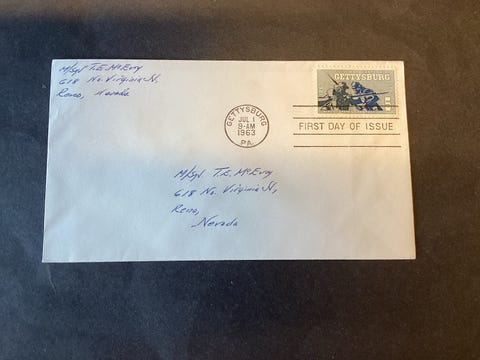 M/Sgt T.E. McEvoy
618 No. Virginia St,
Reno, Nevada
GETTYSBURG
JUL 1
9-AM
1963
PA.
GETTYSBURG
FIRST DAY OF ISSUE
M/Sgt T.E. McEvoy
618 No. Virginia St,
Reno,
Nevada